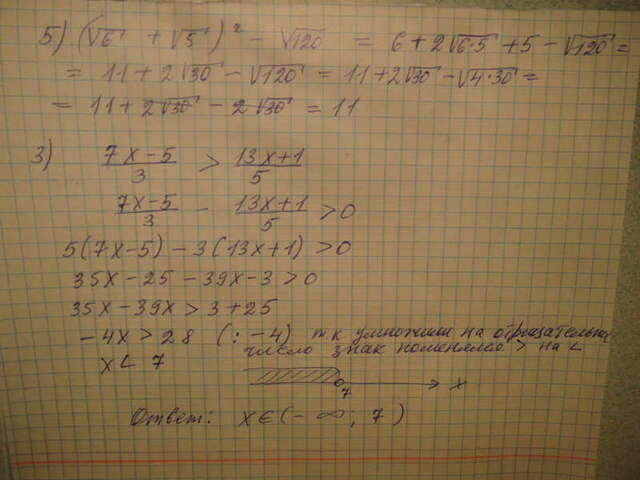 5) (√6 + √5)² - √120 = 6 + 2√6·5 + 5 - √120 =
= 11 + 2√30 - √120 = 11 + 2√30 - √4·30 =
= 11 + 2√30 - 2√30 = 11
3) (7x-5)/3 > (13x+1)/5
(7x-5)/3 - (13x+1)/5 > 0
5(7x-5) - 3(13x+1) > 0
35x - 25 - 39x - 3 > 0
35x - 39x > 3 + 25
-4x > 28 (: -4) т.к умножили на отрицательн
число знак поменялся > на <
x < 7
7 x
Ответ: x∈(-∞; 7)